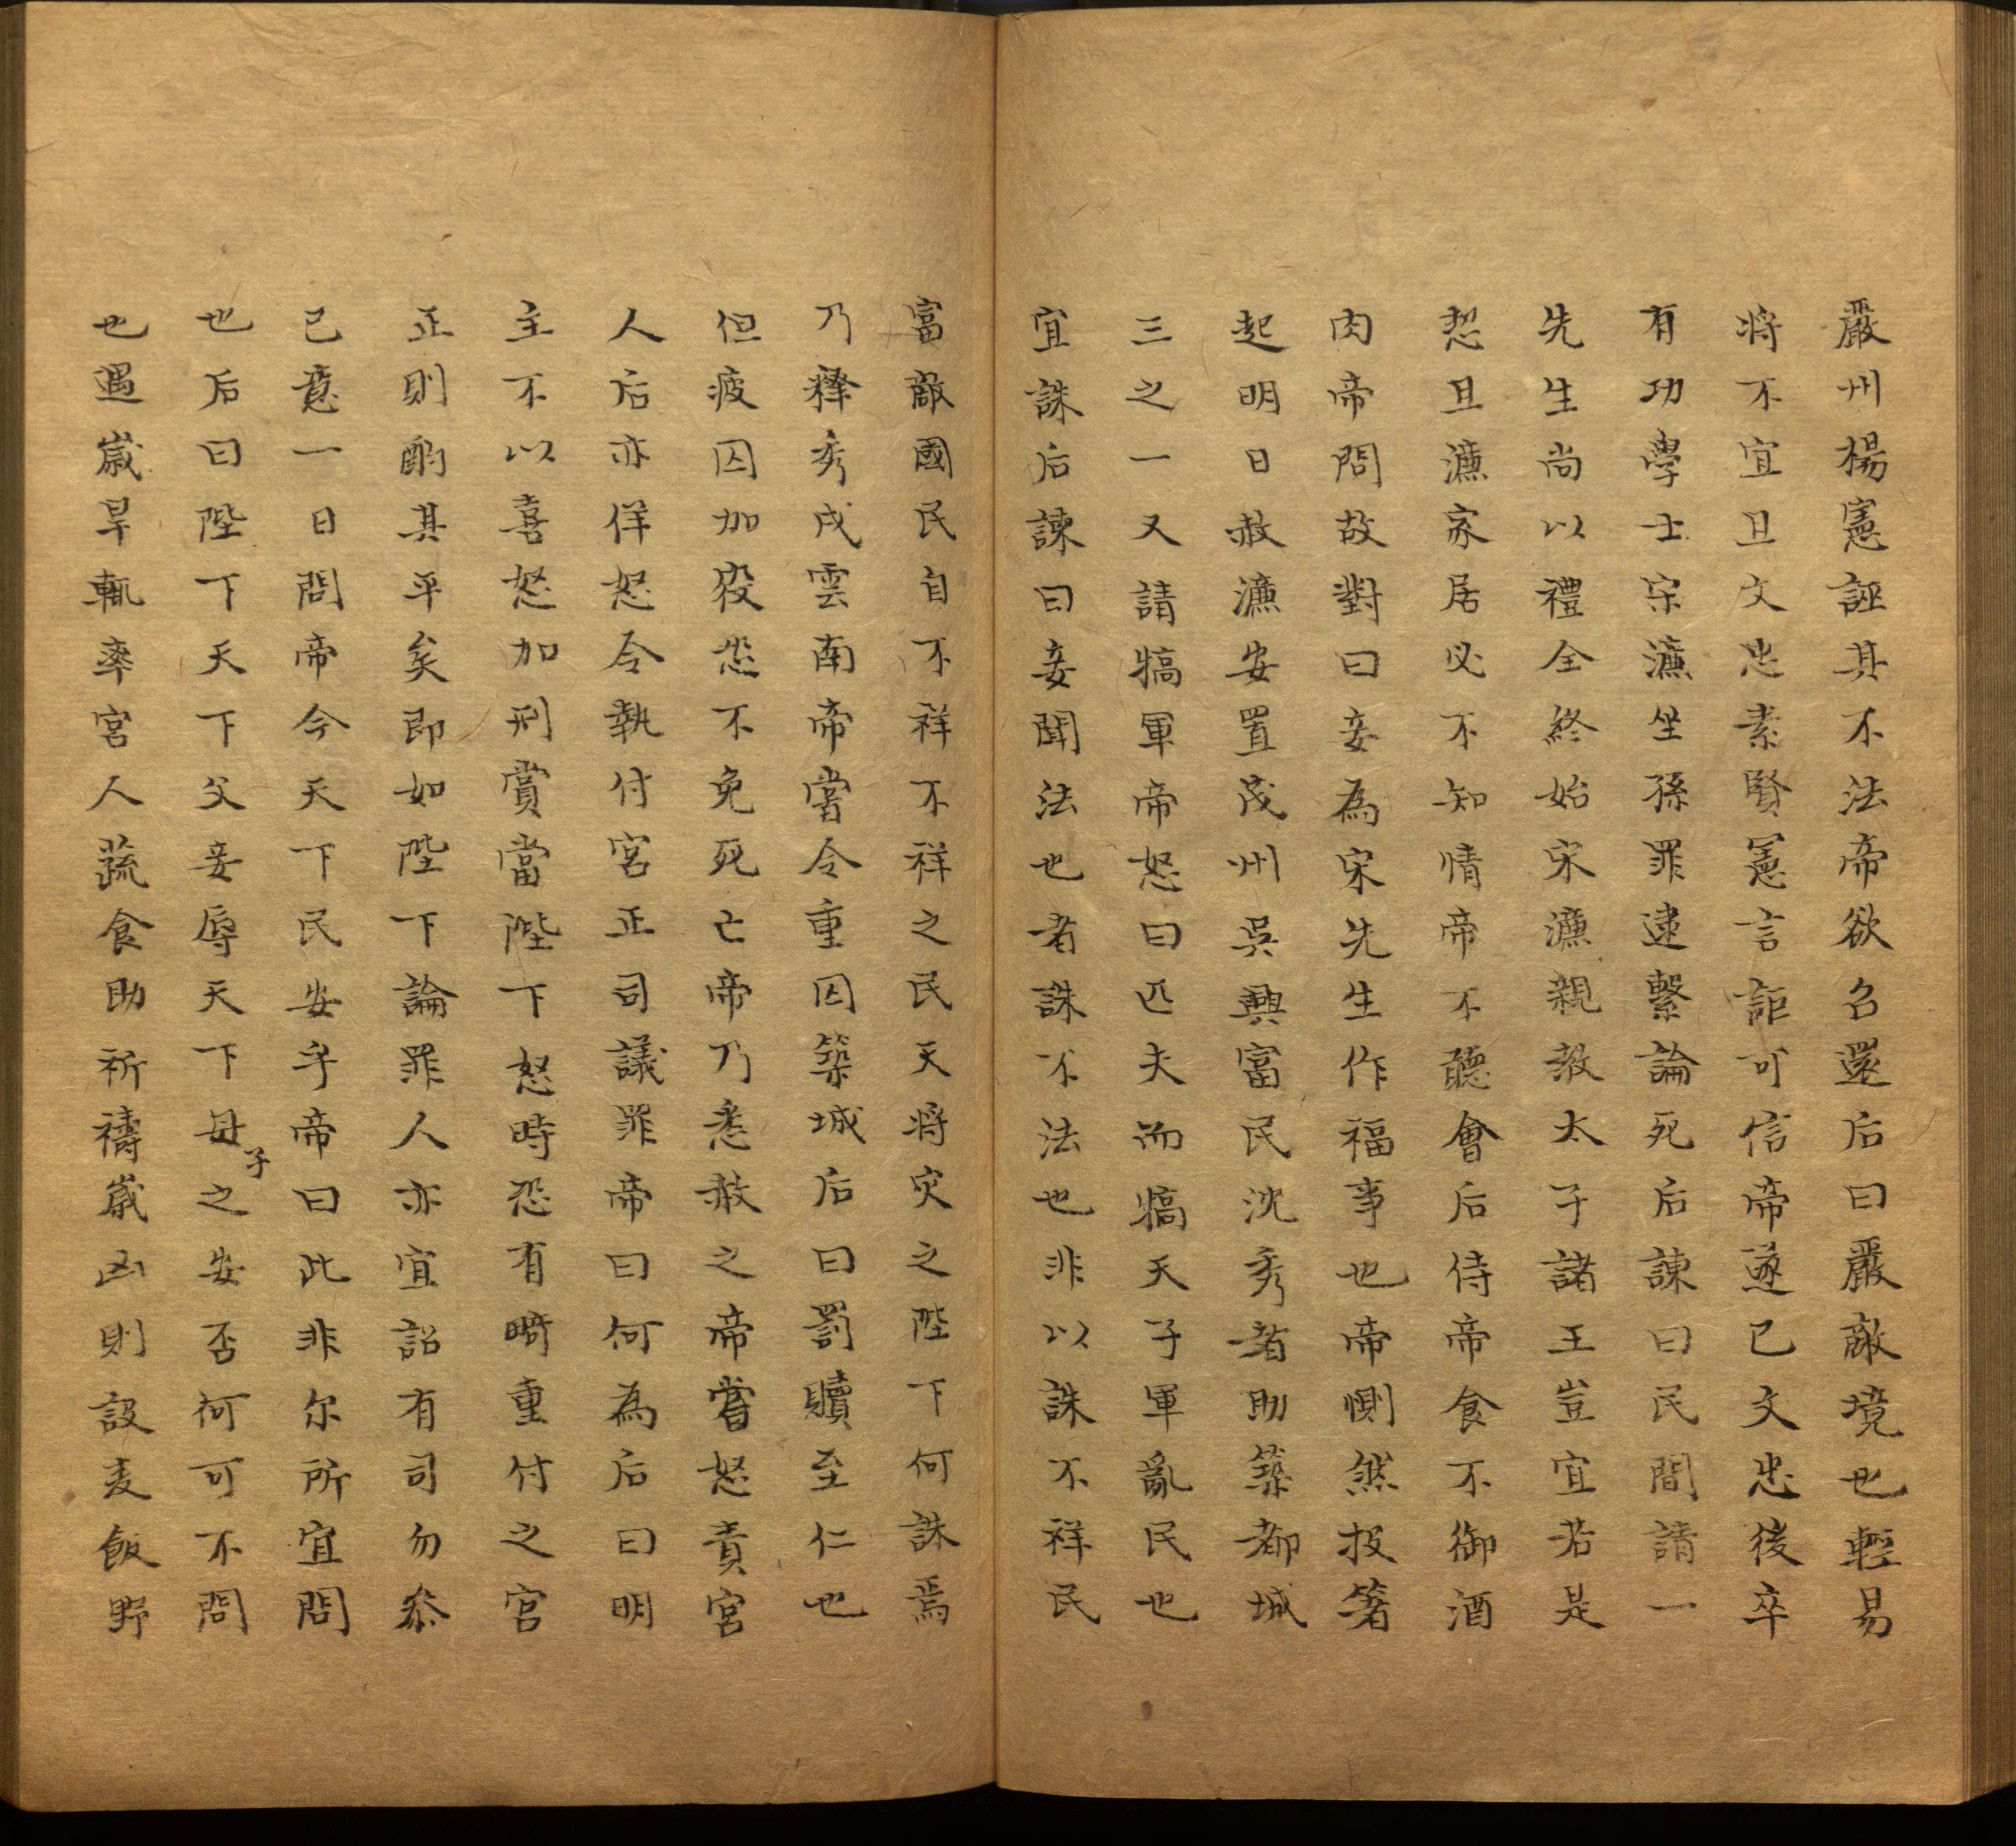 嚴州楊憲誣其不法帝欲召還后曰嚴敵境也輕易
將不宜且文忠素賢憲言詎可信帝遂已文忠後卒
有功學士宋濂坐孫罪逮繫論死后諫曰民間請一
先生尚以禮全終始宋濂親教太子諸王豈宜若是
恝且濂家居必不知情帝不聽會后侍帝食不御酒
肉帝問故對曰妾為宋先生作福事也帝惻然投箸
起明日赦濂安置茂州吳興富民沈秀者助築都城
三之一又請犒軍帝怒曰匹夫而犒天子軍亂民也
宜誅后諫曰妾聞法也者誅不法也非以誅不祥民
富敵國民自不祥不祥之民天將灾之陛下何誅焉
乃釋秀戍雲南帝嘗令重囚築城后曰罰贖至仁也
但疲囚加役恐不免死亡帝乃悉赦之帝嘗怒責宮
人后亦佯怒令執付宮正司議罪帝曰何為后曰明
主不以喜怒加刑賞當陛下怒時恐有畸重付之宮
正則酌其平矣即如陛下論罪人亦宜詔有司勿叅
己意一日問帝今天下民安乎帝曰此非尔所宜問
也后曰陛下天下父妾辱天下母子之安否何可不問
也遇歲旱輒率宮人蔬食助祈禱歲凶則設麦飯野